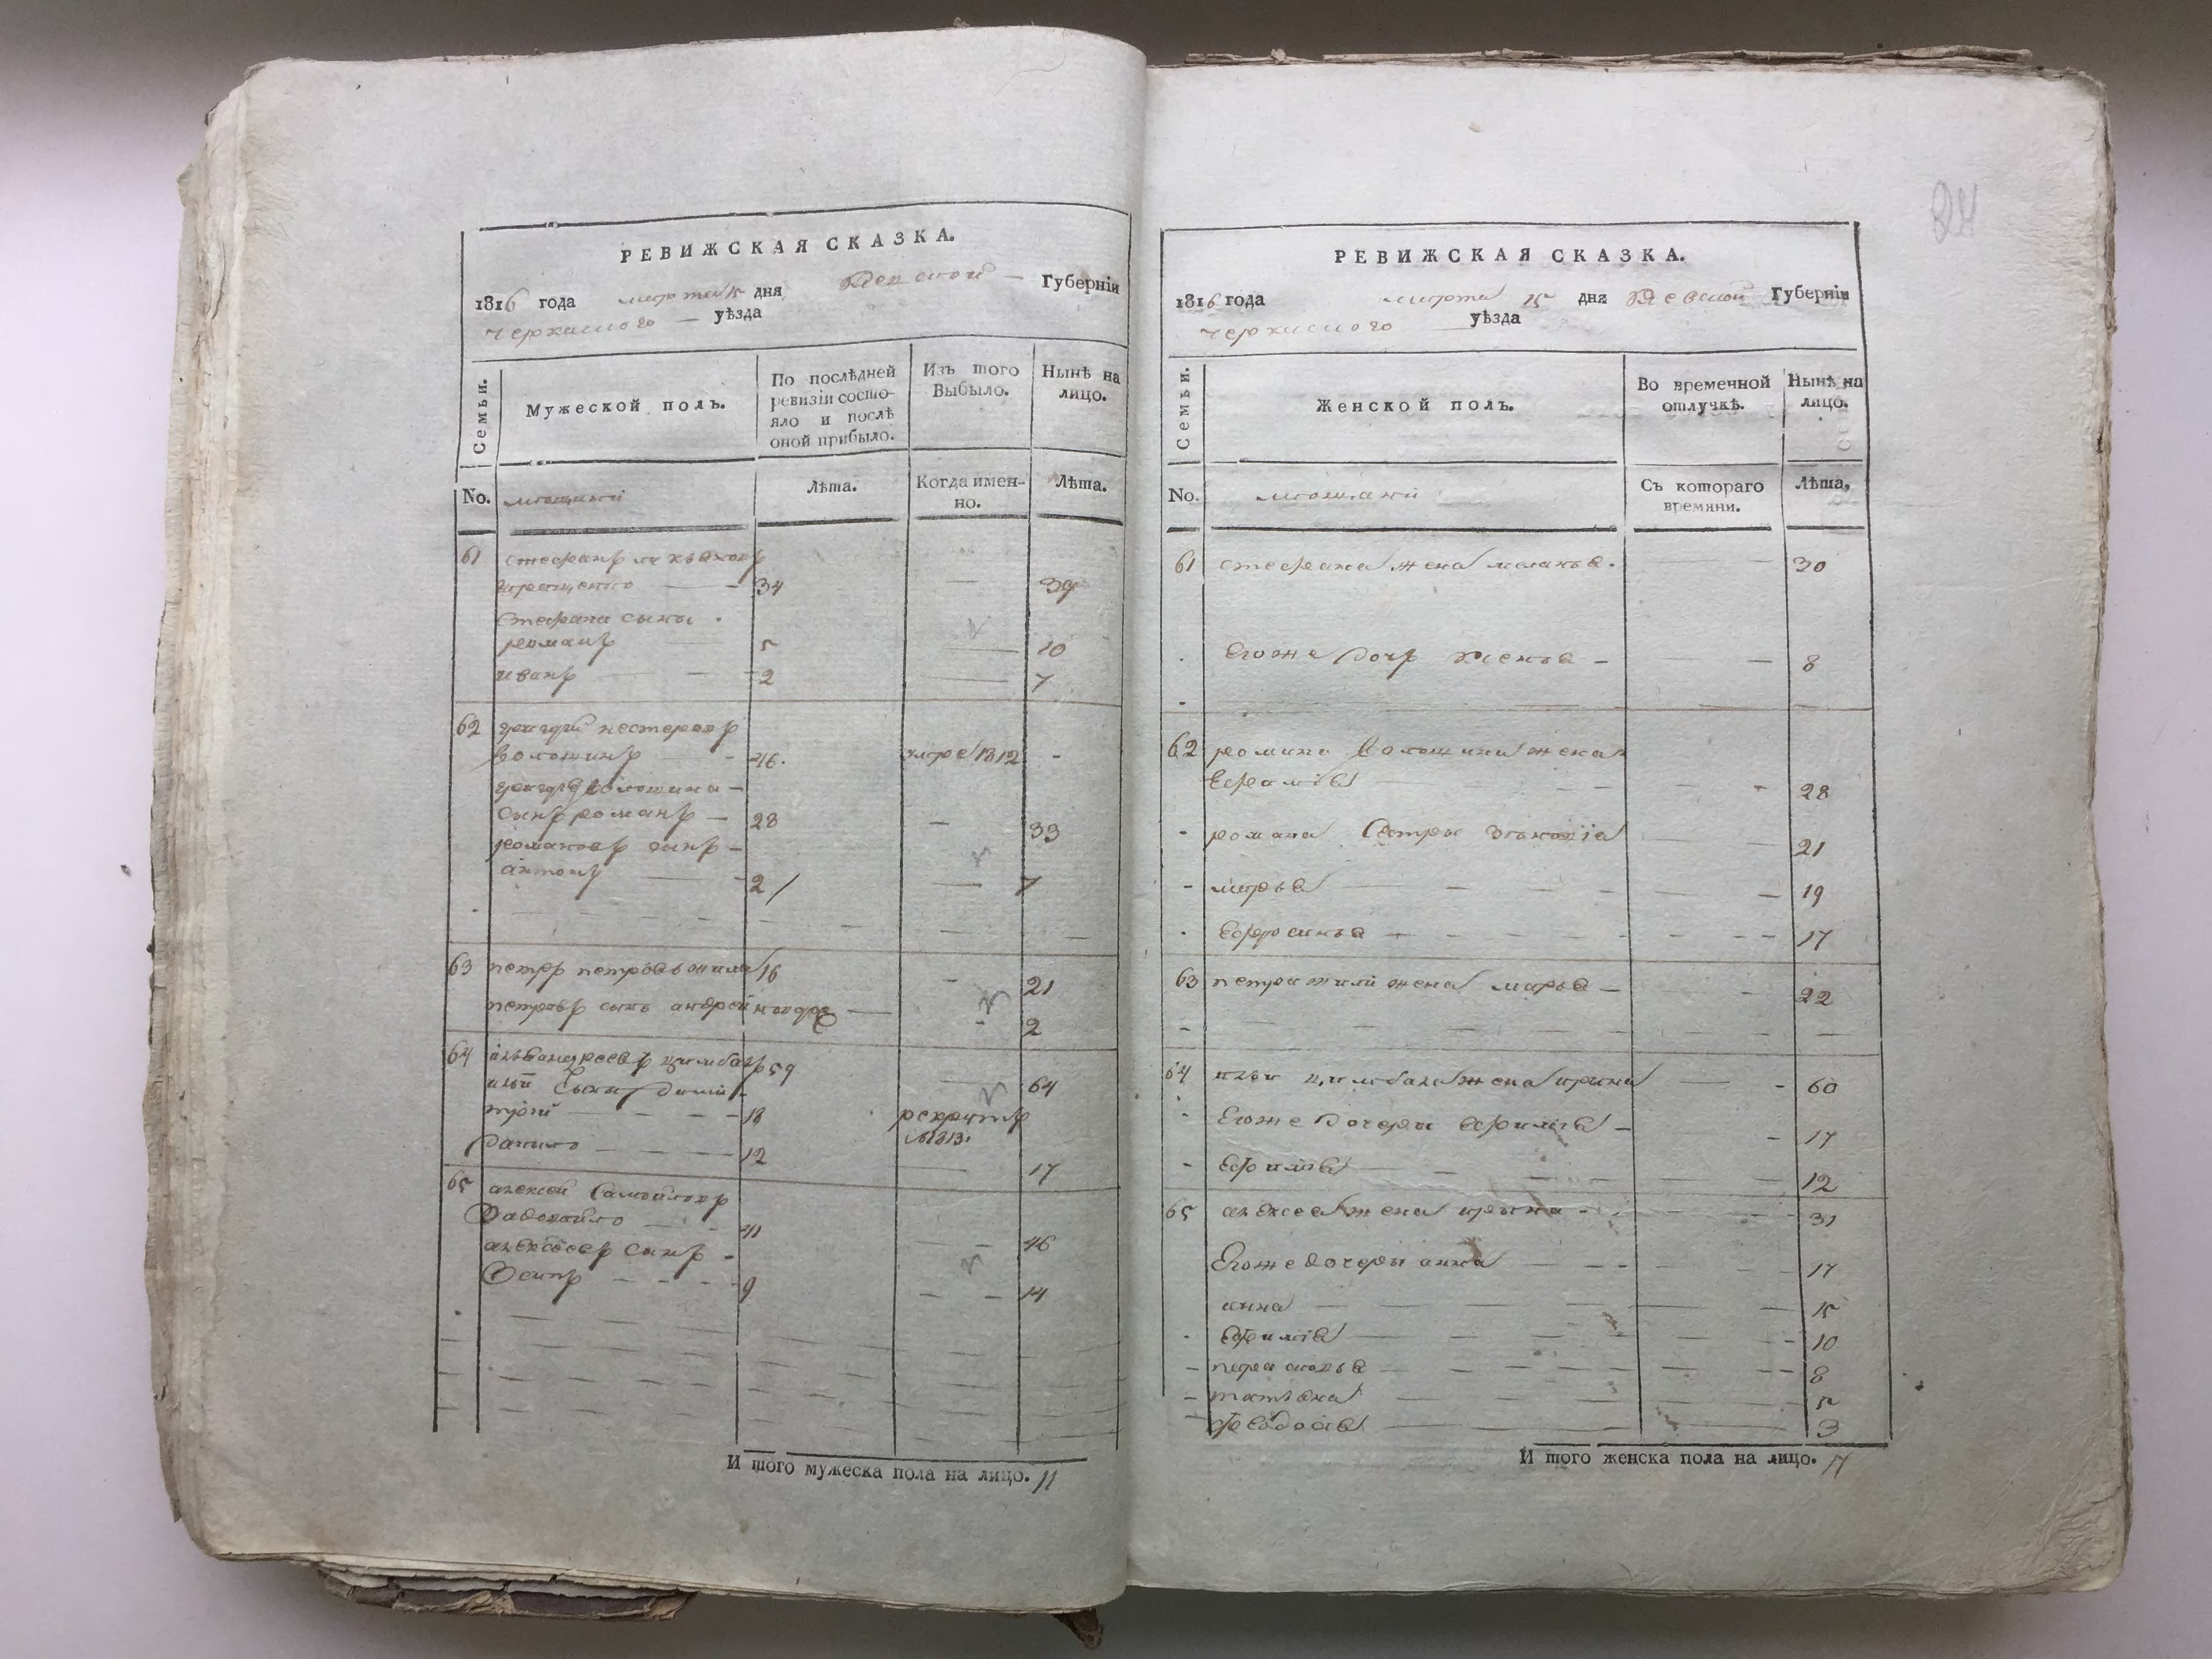 РЕВИЖСКАЯ СКАЗКА.
1816 года марта 15 дня Губернии
черкаского уѣзда
Семьи.
Мужеской полъ.
По послѣдней
ревизіи состо-
яло и послѣ
оной прибыло.
Изъ того
Выбыло.
Нынѣ на
лицо.
No.
мещани
Лѣта.
Когда имен-
но.
Лѣта.
61
стефанъ
34 39
стефана сыны
романъ 5 10
иванъ 2 7
62 нестеровъ
волошинъ 46 умре 1812
волошина
сынъ романъ 28 33
романовъ сынъ
антонъ 2 7
63 петръ петровъ жила 16 21
петровъ сынъ андрей 2
64 андреевъ цимбалъ 59 64
сыны дими-
трій 18 рекрутъ
1813
данило 12 17
65 алексей самойловъ
41 46
алексеевъ сынъ
Осипъ 9 14
И того мужеска пола на лицо. 11
РЕВИЖСКАЯ СКАЗКА.
1816 года марта 15 дня Киевской Губерніи
черкаского уѣзда
Семьи.
Женской полъ.
Во времечной
отлучкѣ.
Нынѣ на
лицо.
No.
мещани
Съ котораго
времяни.
Лѣта,
61 стефана жена меланья 30
Егоже дочь 8
62 романа волошина жена
28
романа сестры 21
марья 19
Ефросинья 17
63 петра жили жена марья 22
64 ильи цимбала жена ирина 60
Егоже дочери 17
Ефимія 12
65 алексея жена ирина 31
Егоже дочери анна 17
анна 15
Ефимія 10
парасковья 8
татьяна 5
феодосія 3
И того женска пола на лицо. 17